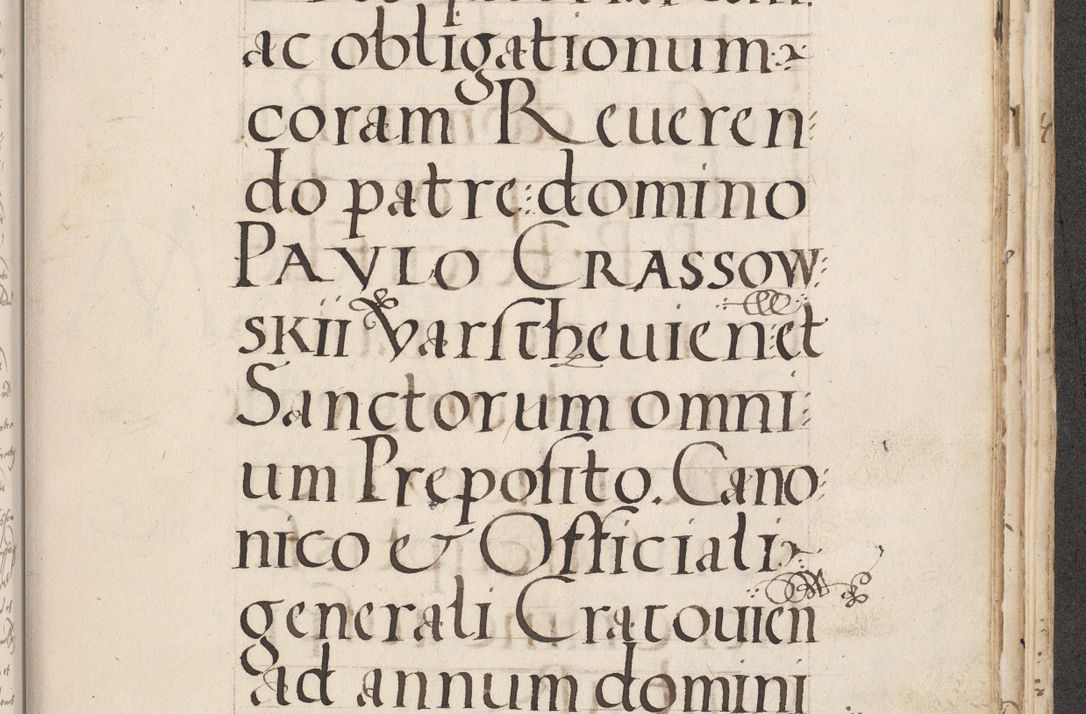 ac obligationum
coram Reueren:
do patre: domino
PAVLO CRASSOW:
SKII Varscheuien: et
Sanctorum omni:
um Preposito. Cano:
nico & Officiali
generali Cracouien
ad annum domini